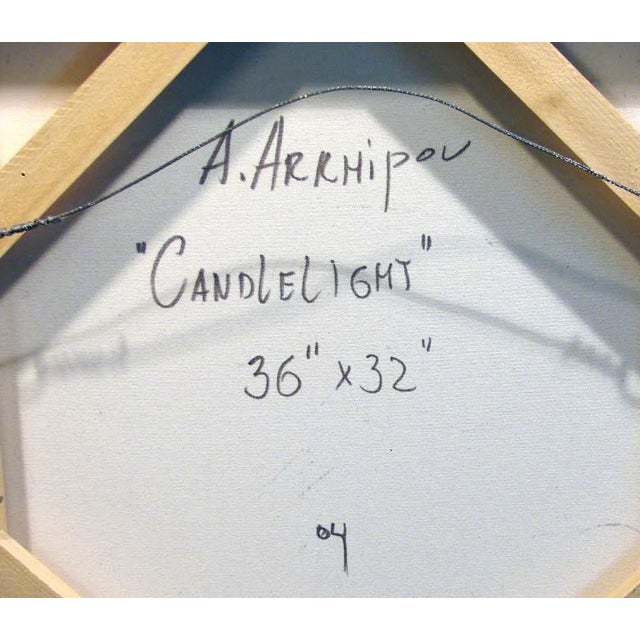 A. Arkhipov
"CANDLELIGHT"
36" x 32"
04